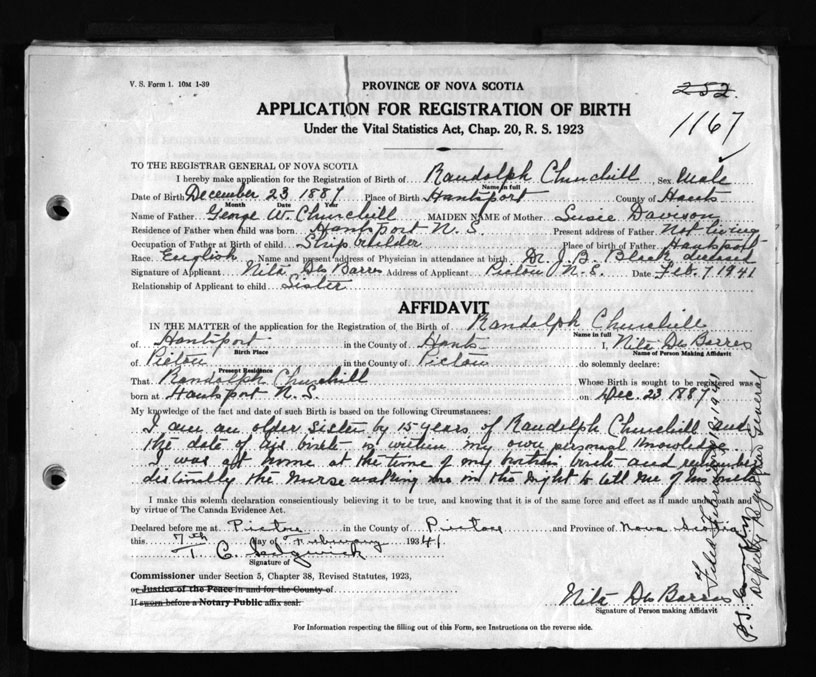 V. S. Form 1. 10M 1-39
PROVINCE OF NOVA SCOTIA
252.
APPLICATION FOR REGISTRATION OF BIRTH
1167
Under the Vital Statistics Act, Chap. 20, R. S. 1923
TO THE REGISTRAR GENERAL OF NOVA SCOTIA
I hereby make application for the Registration of Birth of Randolph Churchill, Sex Male
Name in full
Date of Birth December 23 1887 Place of Birth Hantsport County of Hants
Month Date Year
Name of Father George W. Churchill MAIDEN NAME of Mother Susie Davison
Residence of Father when child was born Hantsport N. S. Present address of Father Not living
Occupation of Father at Birth of child Ship builder Place of birth of Father Hantsport
Race English Name and present address of Physician in attendance at birth Dr. J. B. Black, deceased
Signature of Applicant Nita Des Barres Address of Applicant Pictou N. S. Date Feb. 7 1941
Relationship of Applicant to child Sister
AFFIDAVIT
IN THE MATTER of the application for the Registration of the Birth of Randolph Churchill
Name in full
of Hantsport in the County of Hants I, Nita Des Barres
Birth Place Name of Person Making Affidavit
of Pictou in the County of Pictou do solemnly declare:
Present Residence
That Randolph Churchill Whose Birth is sought to be registered was
born at Hantsport N. S. on Dec. 23 1887
My knowledge of the fact and date of such Birth is based on the following Circumstances:
I am an older sister by 15 years of Randolph Churchill and
the date of his birth is within my own personal knowledge
I was at home at the time of my brothers birth and remember
distinctly the nurse waking me in the night to tell me of his birth
I make this solemn declaration conscientiously believing it to be true, and knowing that it is of the same force and effect as if made under oath and
by virtue of The Canada Evidence Act.
Declared before me at Pictou in the County of Pictou and Province of Nova Scotia
this 7th day of February 1934 41.
T. C. Sedgwick
Signature of
Commissioner under Section 5, Chapter 38, Revised Statutes, 1923,
or Justice of the Peace in and for the County of
If sworn before a Notary Public affix seal.
Nita Des Barres
Signature of Person making Affidavit
For Information respecting the filling out of this Form, see Instructions on the reverse side.
Filed February 1941
Deputy Registrar General